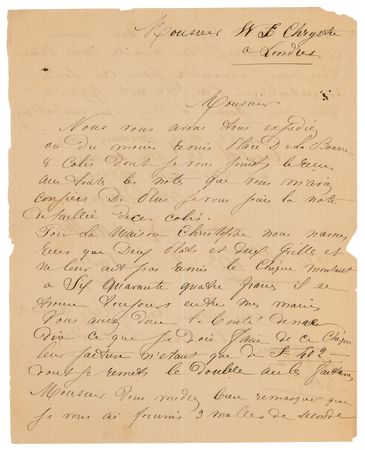 Monsieur W B Chrystie
a Londres
Monsieur
Nous vous avons tous expedié
ou du moins remis Place De la Bourse
8 Colis Dont je vous joints le reçu
au toute les notes que vous m'aviez
confiees De Plus je vous joins la note
detaillée de ces colis.
Pour la Maison Christophle nous navons
reçus que Deux plats et deux Grille et
ne leur ait pas remis le Chèque montant
a Six Quarante quatre francs il se
trouve toujours entre mes mains
Vous aurez donc la Bonté de me
dire ce que je Dois faire de ce Chèque
leur facture n'étant que de F 462
dont je remets le Double avec les factures
Monsieur Vous voudrez bien remarquer que
je vous ai fournis 3 malles de seconde